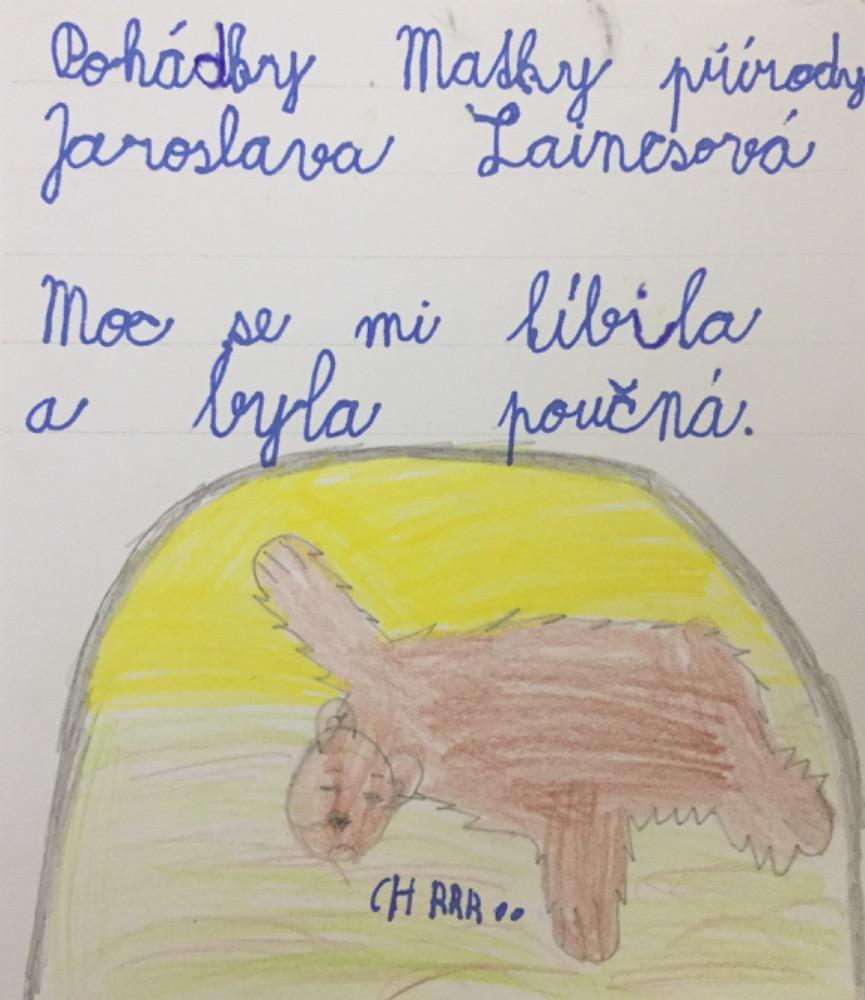 Pohádky Matky přírody
Jaroslava
Moc se mi líbila
a byla poučná.
CH RRR..